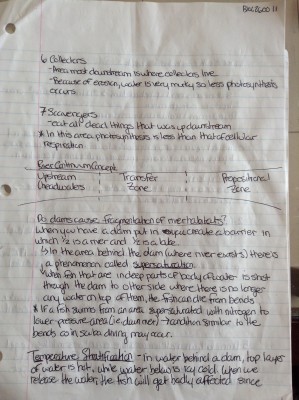 6 Collectors
- Area most downstream is where collectors live
- Because of erosion, water is very murky so less photosynthesis
occurs
7 Scavengers
- eat all dead things that was up downstream
* In this area photosynthesis is less than that of cellular
respiration
River Continuum Concept
Upstream Transfer
Headwaters Zone Zone
Do dams cause fragmentation of river habitats?
When you have a dam put in you create a barrier in
which 1/2 is a river and 1/2 is a lake.
in the area behind the dam (where river exists) there is
a phenomenon called supersaturation
When fish that are in deep parts of body of water is shot
through the dam to other side where there is no longer
any water on top of them, the fish can die from bends
* If a fish swims from an area supersaturated with nitrogen to
lower pressure area (ie. down river) → condition similar to the
bends as in scuba diving may occur.
Temperature Stratification - in water behind a dam, top layer
of water is hot, while water below is icy cold. When we
release the water, the fish will get badly affected since